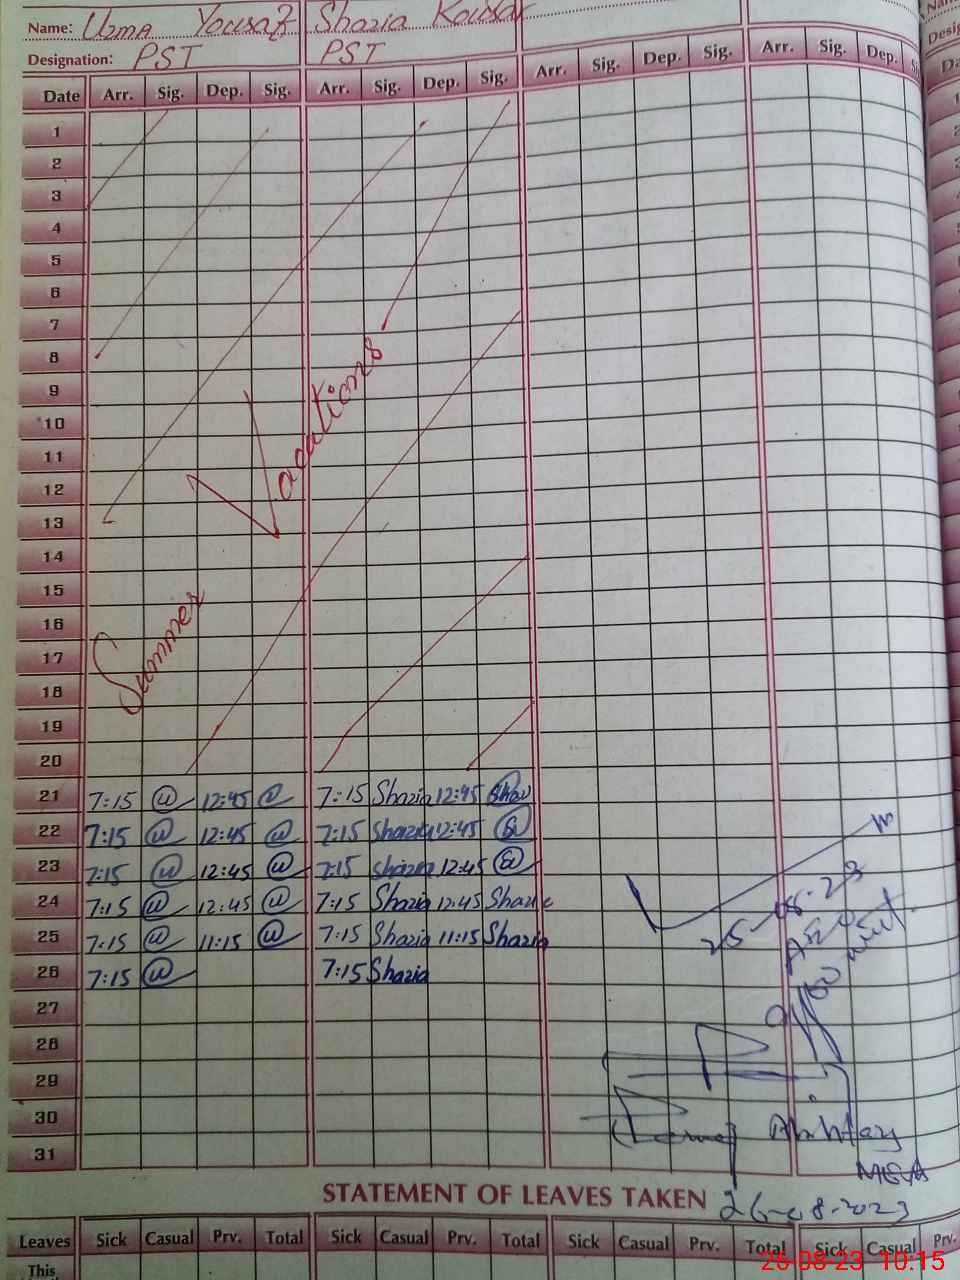 Name: Uzma Yousaf Shazia Kousar
Designation: PST PST
Date Arr. Sig. Dep. Sig. Arr. Sig. Dep. Sig. Arr. Sig. Dep. Sig. Arr. Sig. Dep.
1
2
3
4
5
6
7
8
9
10
11
12
13
14
15
16
17
18
19
20
Summer Vacations
21 7:15 12:45 7:15 Shazia 12:45
22 7:15 12:45 7:15 Shazia 12:45
23 7:15 12:45 7:15 Shazia 12:45
24 7:15 12:45 7:15 Shazia 12:45 Shazia
25 7:15 11:15 7:15 Shazia 11:15 Shazia
26 7:15 7:15 Shazia
27
28
29
30
31
25-08-23
Akhtar
MEA
26-08-2023
STATEMENT OF LEAVES TAKEN
Leaves Sick Casual Prv. Total Sick Casual Prv. Total Sick Casual Prv. Total Sick Casual Prv.
This
26-08-23 10.15